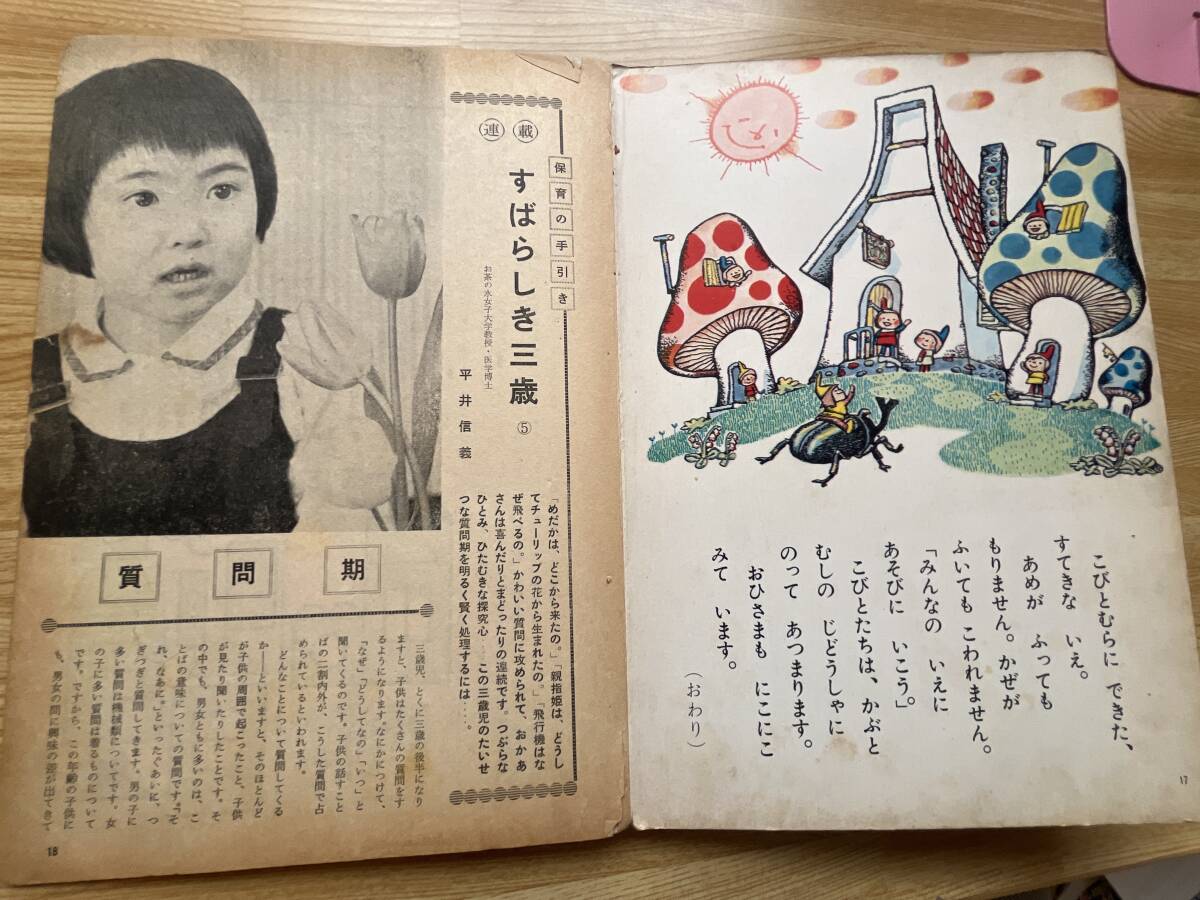 こびとむらに できた、
すてきな いえ。
あめが ふっても
もりません。かぜが
ふいても こわれません。
「みんなの いえに
あそびに いこう。」
こびとたちは、かぶと
むしの じどうしゃに
のって あつまります。
おひさまも にこにこ
みて います。
(おわり)
17
保育の手引き
連載
すばらしき三歳 ⑤
お茶の水女子大学教授・医学博士
平井信義
「めだかは、どこから来たの。」「親指姫は、どうし
てチューリップの花から生まれたの。」「飛行機はな
ぜ飛べるの。」かわいい質問に攻められて、おかあ
さんは喜んだりとまどったりの連続です。つぶらな
ひとみ、ひたむきな探究心……この三歳児のたいせ
つな質問期を明るく賢く処理するには……。
質問期
三歳児、とくに三歳の後半になり
ますと、子供はたくさんの質問をす
るようになります。なにかにつけて、
「なぜ」「どうしてなの」「いつ」と
聞いてくるのです。子供の話すこと
ばの二割内外が、こうした質問で占
められているといわれます。
どんなことについて質問してくる
か――といいますと、そのほとんど
が子供の周囲で起こったこと、子供
が見たり聞いたりしたことです。そ
の中でも、男女ともに多いのは、こ
とばの意味についての質問です。「そ
れ、なあに。」といったぐあいに、つ
ぎつぎと質問してきます。男の子に
多い質問は機械類についてです。女
の子に多い質問は着るものについて
です。ですから、この年齢の子供に
も、男女の間に興味の差が出てきて
18